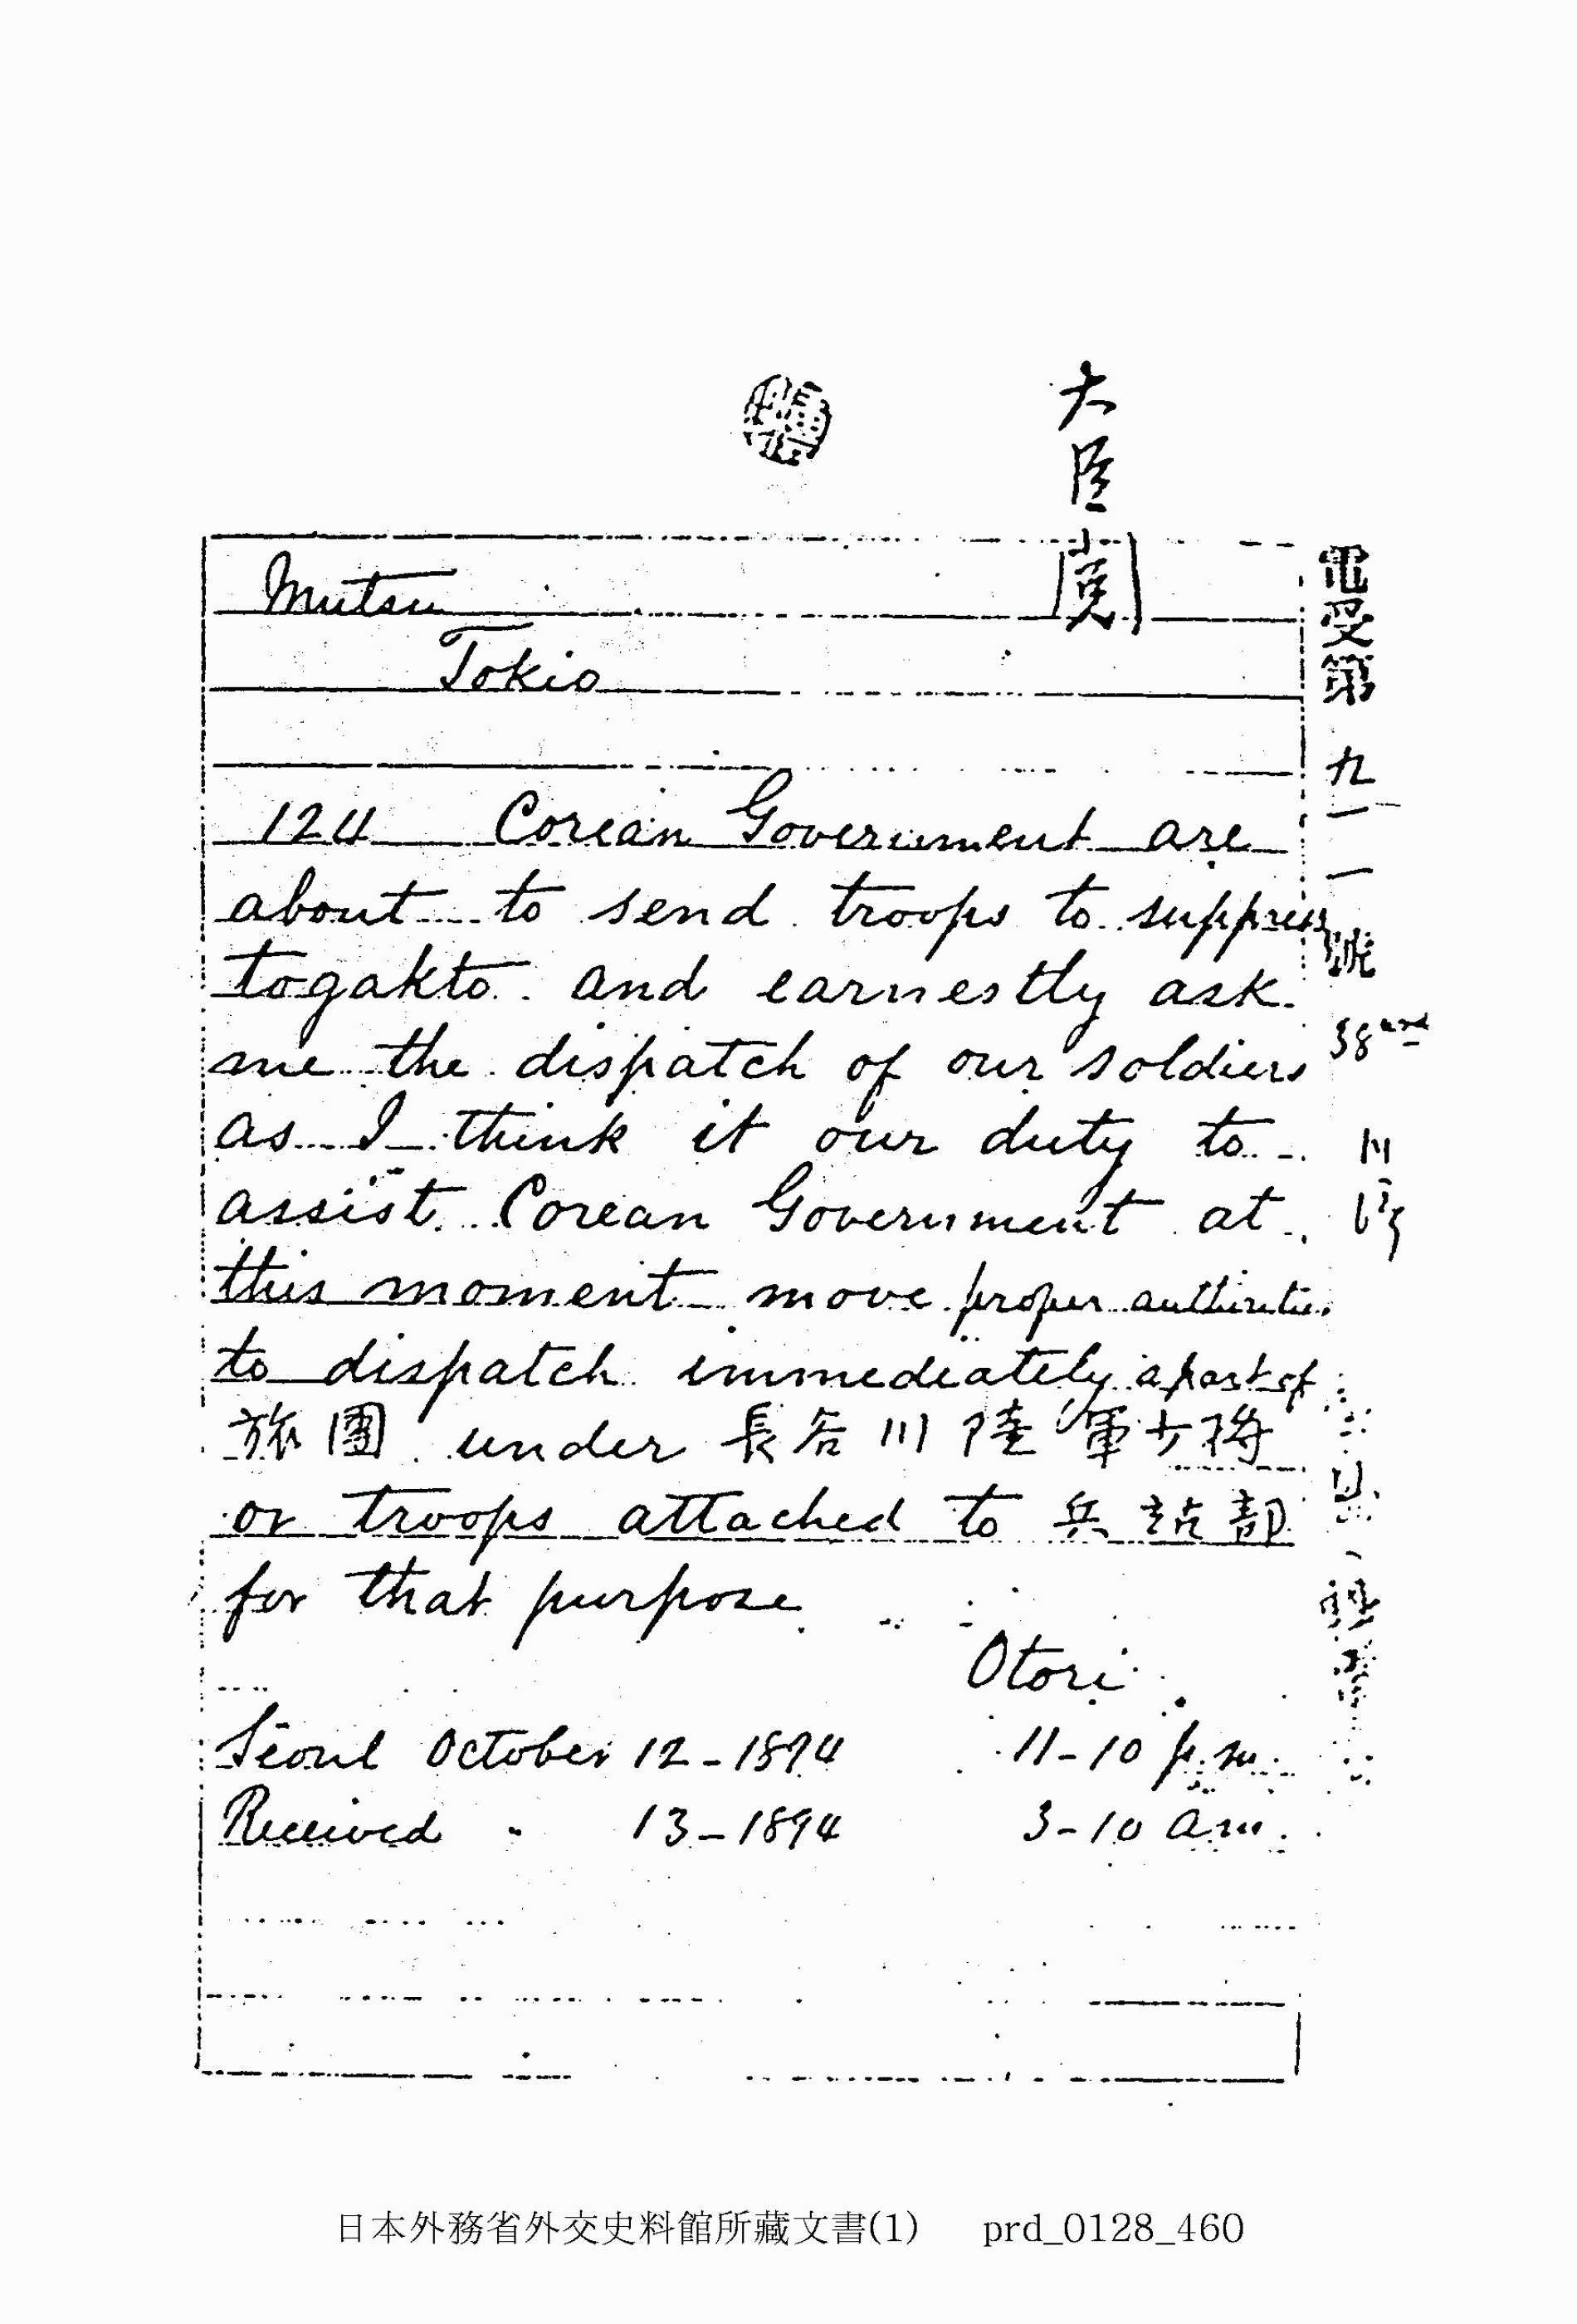 大臣
Mutsu
Tokio
124 Corean Government are
about to send troops to suppress
togakto and earnestly ask
me the dispatch of our soldiers
as I think it our duty to
assist Corean Government at
this moment move proper authorities
to dispatch immediately a part of
旅團 under 長谷川陸軍少將
or troops attached to 兵站部
for that purpose
Otori
Seoul October 12-1894 11-10 p.m.
Received " 13-1894 3-10 a.m.
電受第九一一號
38 word
日本外務省外交史料館所藏文書(1) prd_0128_460